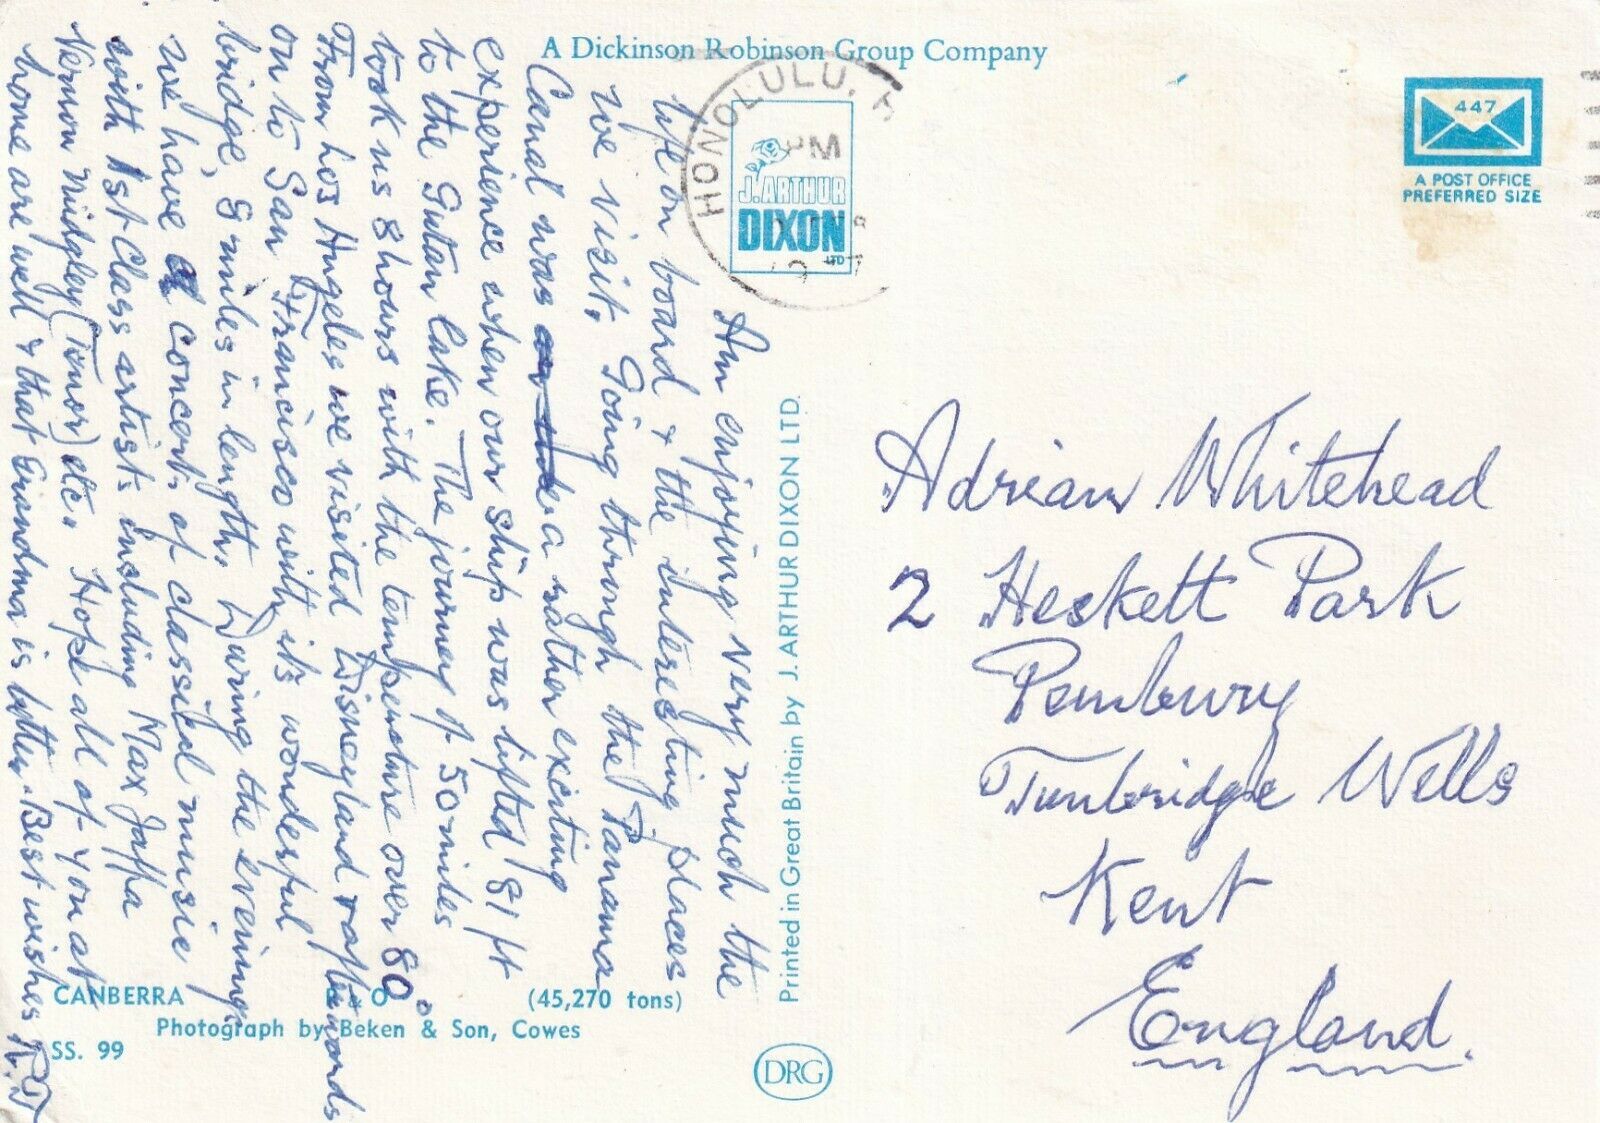 A Dickinson Robinson Group Company
HONOLULU, H
PM
J. ARTHUR
DIXON
LTD
447
A POST OFFICE
PREFERRED SIZE
Am enjoying very much the
life on board & the interesting places
we visit. Going through the Panama
Canal was a rather exciting
experience when our ship was lifted 81 ft
to the Gutan lake. The journey of 50 miles
took us 8 hours with the temperature over 80°
From Los Angeles we visited Disneyland & afterwards
on to San Francisco with its wonderful
bridge, 8 miles in length. During the evenings
we have a concert of classical music
with 1st class artists including Max Jaffa
Vernon Midgley (Tenor) etc. Hope all of you at
home are well & that Grandma is better. Best wishes
Printed in Great Britain by J. ARTHUR DIXON LTD.
Adrian Whitehead
2 Heskett Park
Pembury
Tunbridge Wells
Kent
England.
CANBERRA P & O (45,270 tons)
Photograph by Beken & Son, Cowes
SS. 99
DRG